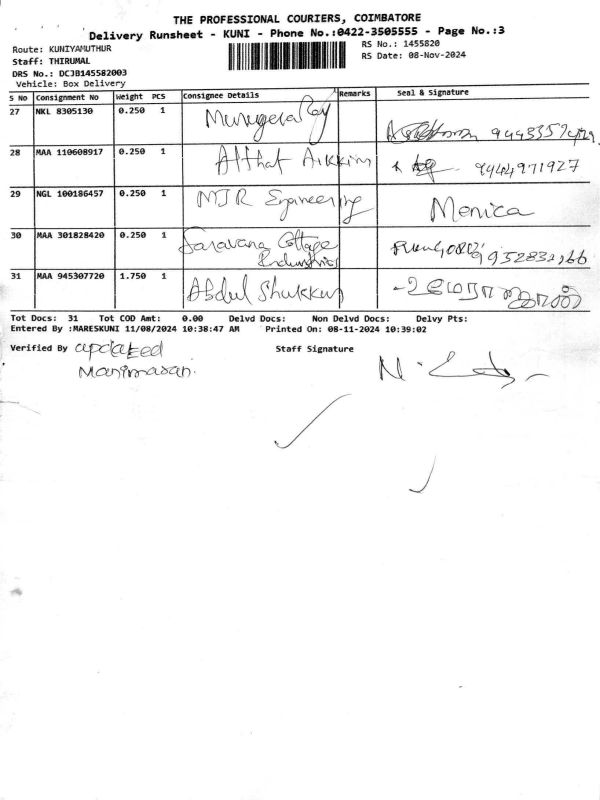 THE PROFESSIONAL COURIERS, COIMBATORE
Delivery Runsheet - KUNI - Phone No.:0422-3505555 - Page No.:3
Route: KUNIYAMUTHUR
RS No.: 1455820
Staff: THIRUMAL
RS Date: 08-Nov-2024
DRS No.: DCJB145582003
Vehicle: Box Delivery
S No Consignment No Weight PCS Consignee Details Remarks Seal & Signature
27 NKL 8305130 0.250 1
28 MAA 110608917 0.250 1 Althaf 9444971927
29 NGL 100186457 0.250 1 MJR Engineering Monica
30 MAA 301828420 0.250 1 Saravana Cottage Industries
31 MAA 945307720 1.750 1 Abdul Shukkur
Tot Docs: 31 Tot COD Amt: 0.00 Delvd Docs: Non Delvd Docs: Delvy Pts:
Entered By :MARESKUNI 11/08/2024 10:38:47 AM Printed On: 08-11-2024 10:39:02
Verified By updated Staff Signature
Manimaran.